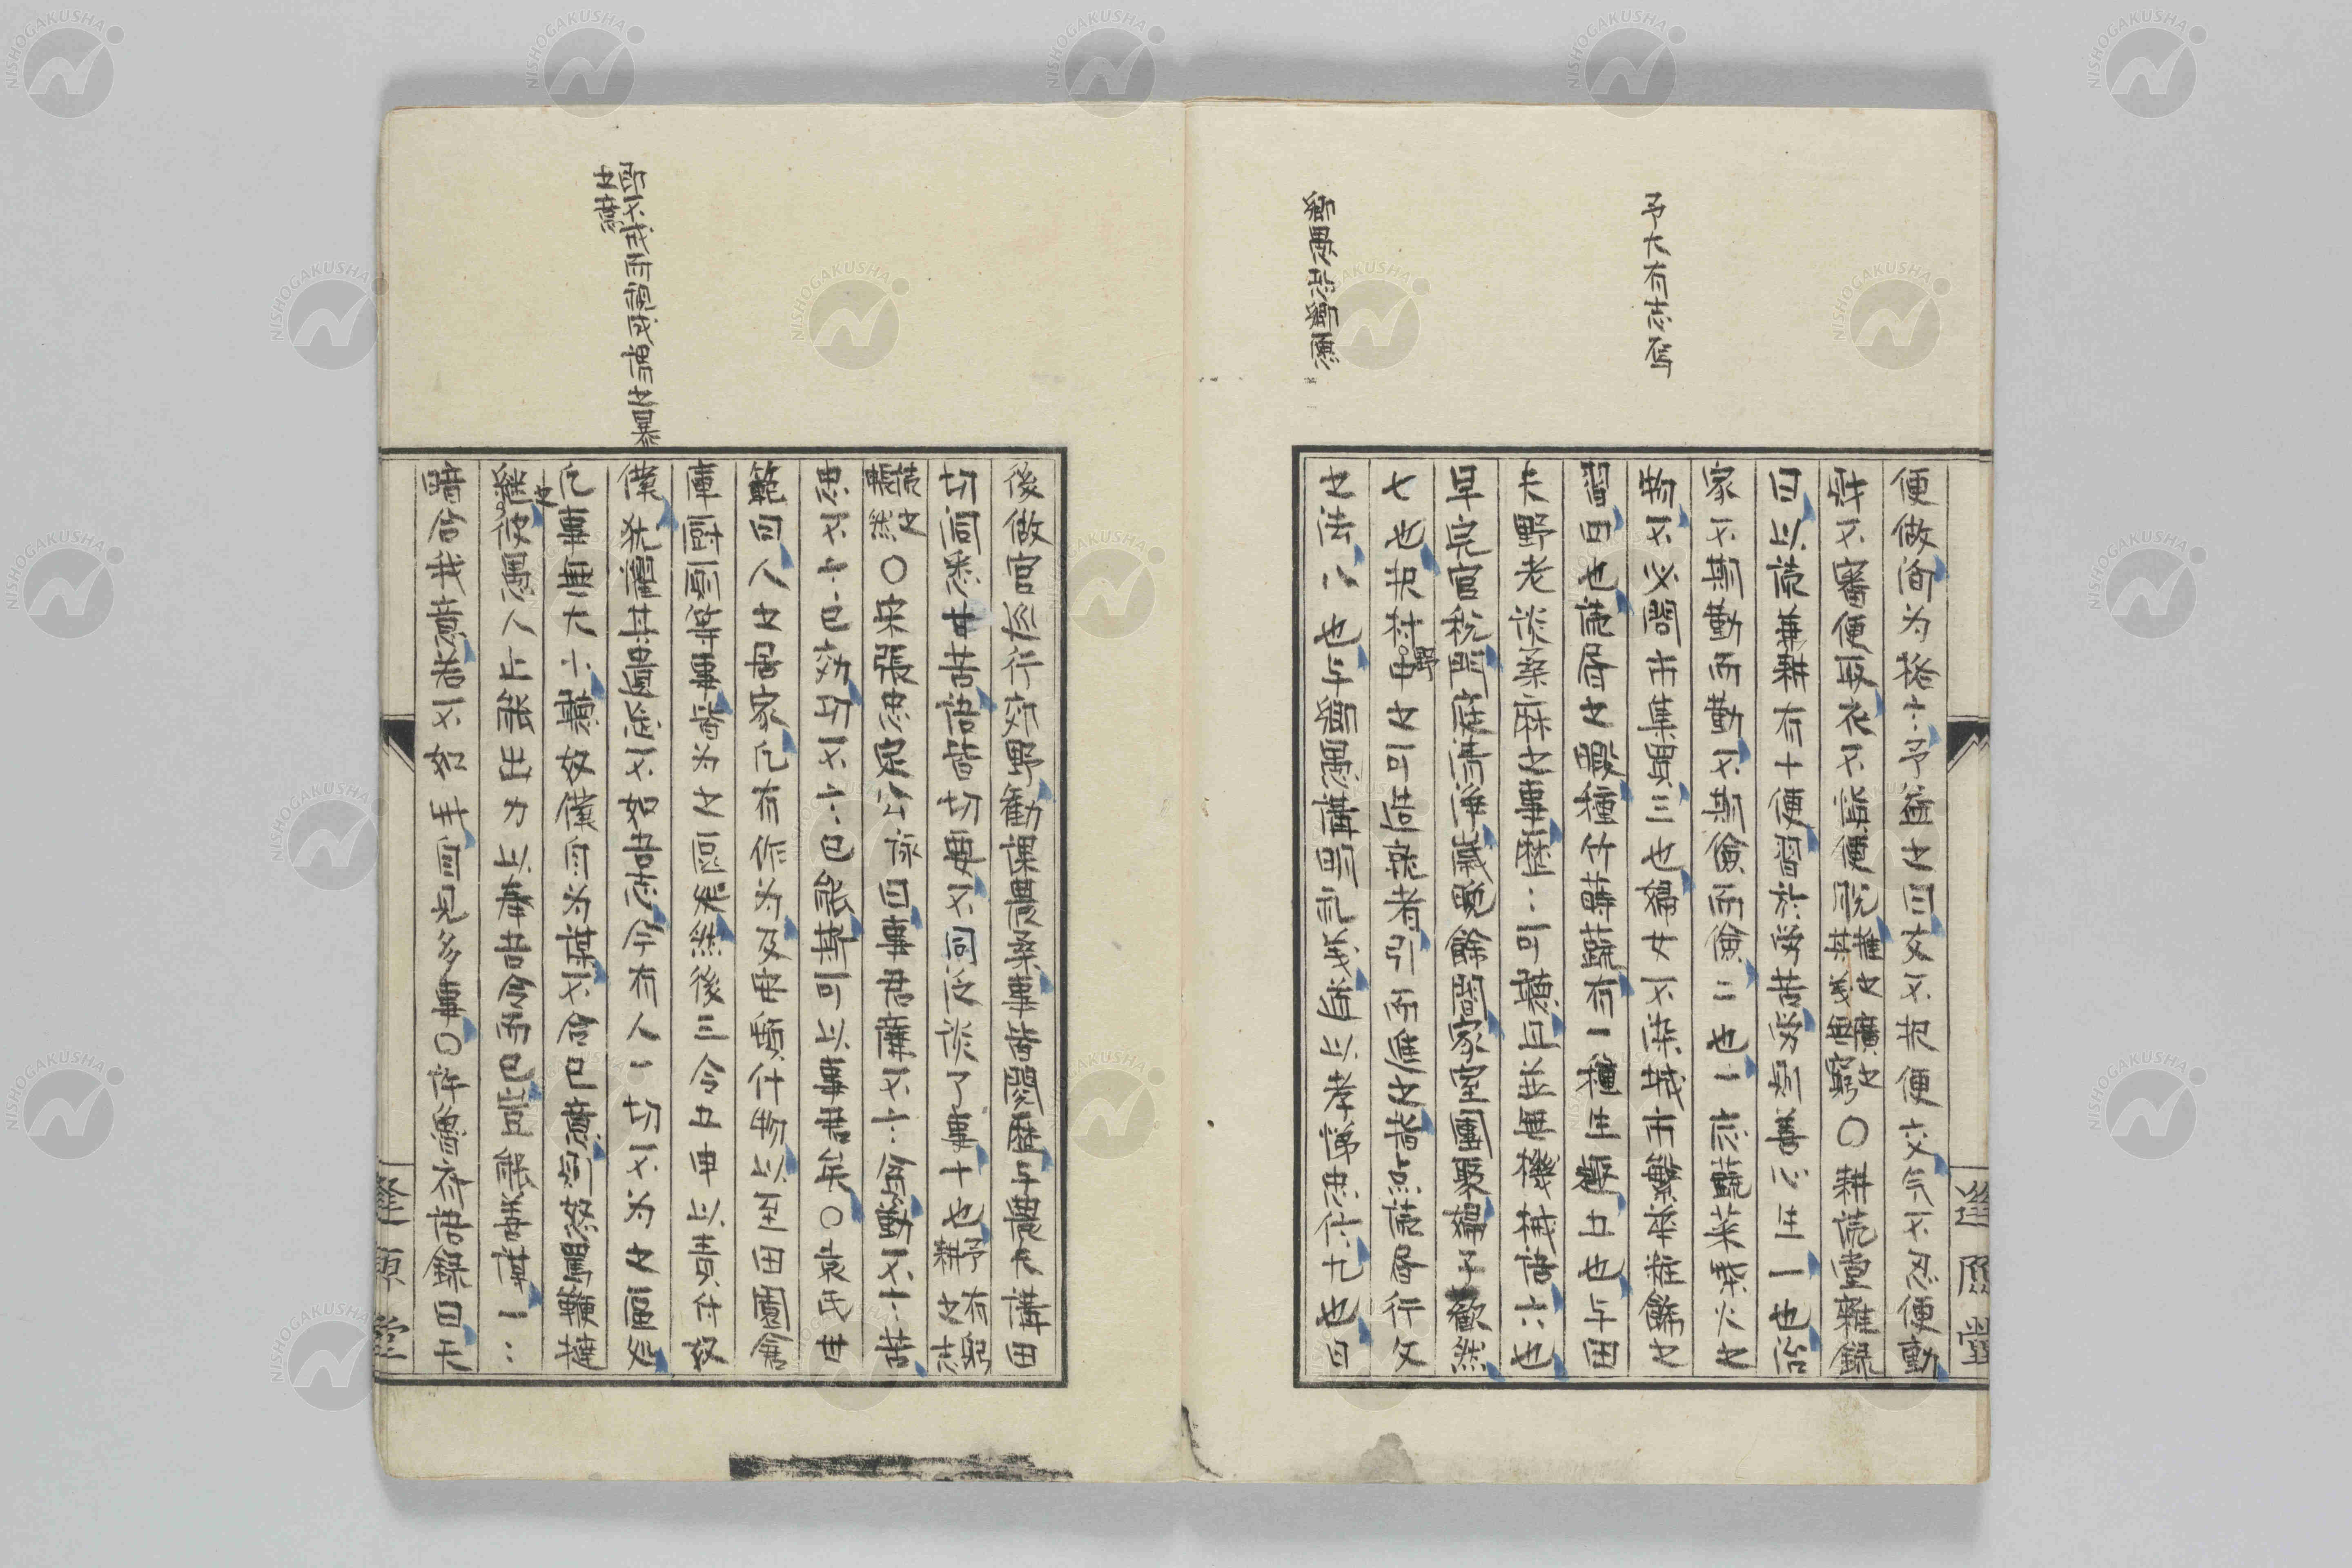 予亦有志焉
鄕愚非鄕愿
便做簡為格言予益之曰交不把便大交气不忍便動
財不審便取衣不愼便脫推之廣之其義無窮〇耕荒堂雜錄
曰以荒兼耕有十便習於勞苦勞則善心生一也治
家不期勤而勤不期儉而儉二也一應蔬菜柴火之
物不必閙市集買三也婦女不染城市繁華粧飾之
習四也荒居之暇種什蒔蔬有一種生趣五也与田
夫野老談桑麻之事歷々可聽且並無機械語六也
早完官稅門庭淸淨歲晚餘閒家室團聚婦子歡然
七也択村野中之可造就者引而進之皆点荒居行文
之法八也与鄕愚講明礼義道以孝悌忠信九也日
後做官巡行郊野勸課農桑事皆閱歷与農夫講田
切同悉甘苦語皆切要不同泛談了事十也予有躬耕之志
荒之悵然〇宋張忠定公詠曰事君廉不言貧勤不言苦
忠不言己効功不言己能斯可以事君矣〇袁氏世
範曰人之居家凡有作為及安頓什物以至田園倉
庫厨厠等事皆為之區処然後三令五申以責付奴
僕犹懼其遺忘不如吾志今有人一切不為之區処
凡事無大小聽奴僕自為謀不合己意則怒罵鞭撻
継之彼愚人止能出力以奉吾令而已豈能善謀一々
暗合我意若不如此自見多事〇許魯斎語錄曰夫
所不戒而視成謂之暴
之意